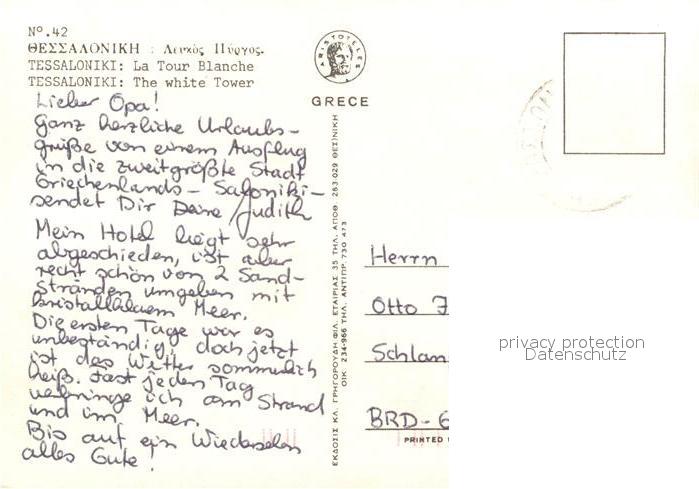 Nº.42
ΘΕΣΣΑΛΟΝΙΚΗ : Λευκός Πύργος.
TESSALONIKI: La Tour Blanche
TESSALONIKI: The white Tower
ARISTOTELES
GRECE
Lieber Opa!
Ganz herzliche Urlaubs-
grüße von einem Ausflug
in die zweitgrößte Stadt
Griechenlands – Saloniki –
sendet Dir Deine Judith
Mein Hotel liegt sehr
abgeschieden, ist aber
recht schön von 2 Sand-
stränden umgeben mit
kristallklarem Meer.
Die ersten Tage war es
unbeständig, doch jetzt
ist das Wetter sommerlich
heiß. Fast jeden Tag
verbringe ich am Strand
und im Meer.
Bis auf ein Wiedersehen
alles Gute!
ΕΚΔΟΣΙΣ ΚΛ. ΓΡΗΓΟΡΟΥΔΗ ΦΙΛ. ΕΤΑΙΡΙΑΣ 35 ΤΗΛ. ΑΠΟΘ. 263.029 ΘΕΣ/ΝΙΚΗ
ΟΙΚ. 234-966 ΤΗΛ. ΑΝΤΙΠΡ. 730 473
Herrn
Otto
Schlan
BRD-6
PRINTED
privacy protection
Datenschutz